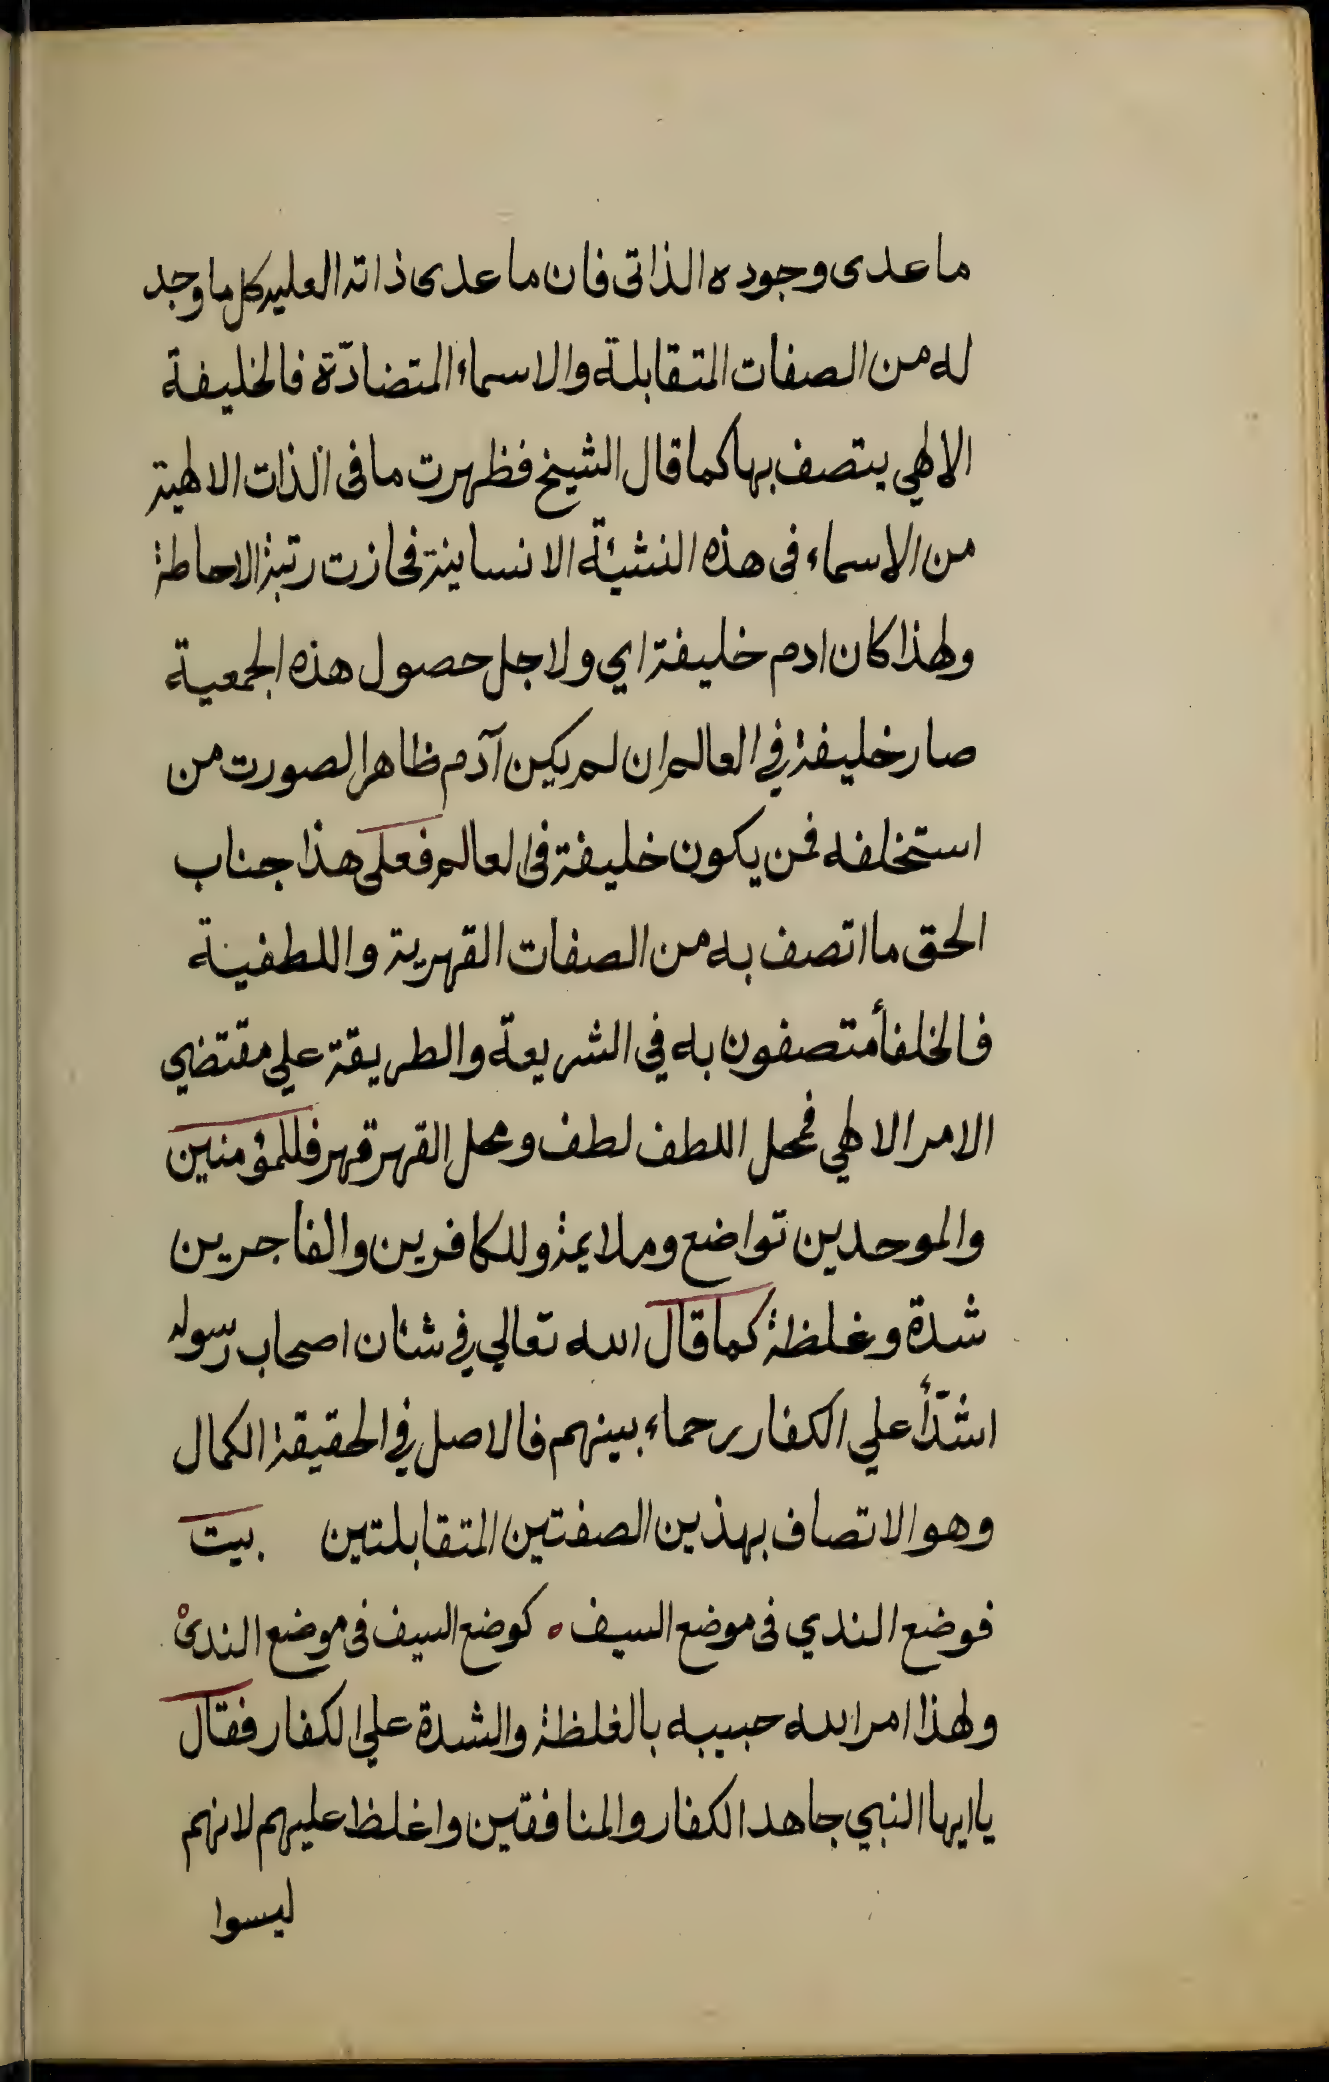 ما عدى وجوده الذاتى فان ما عدى ذاته العليه كل ما وجد
له من الصفات المتقابلة والاسماء المتضادّة فالخليفة
الالهي يتصف بها كما قال الشيخ فظهرت ما فى الذات الالهية
من الاسماء فى هذه النشئة الانسانية فحازت رتبة الاحاطة
ولهذا كان ادم خليفة اي ولاجل حصول هذه الجمعية
صار خليفة في العالم ان لم يكن آدم ظاهر الصورت من
استخلفه فمن يكون خليفة فى العالم فعلى هذا جناب
الحق ما اتصف به من الصفات القهرية واللطفية
فالخلفأ متصفون به في الشريعة والطريقة علي مقتضي
الامر الالهي فمحل اللطف لطف ومحل القهر قهر فللمؤمنين
والموحدين تواضع وملايمة وللكافرين والفاجرين
شدة وغلظة كما قال الله تعالي في شئان اصحاب رسوله
اشدّأ علي الكفار رحماء بينهم فالاصل في الحقيقة الكمال
وهو الاتصاف بهذين الصفتين المتقابلتين بيت
فوضع الندي فى موضع السيف كوضع السيف فى موضع الندى
ولهذا امر الله حبيبه بالغلظة والشدة علي الكفار فقال
يا ايها النبي جاهد الكفار والمنافقين واغلظ عليهم لانهم
ليسوا